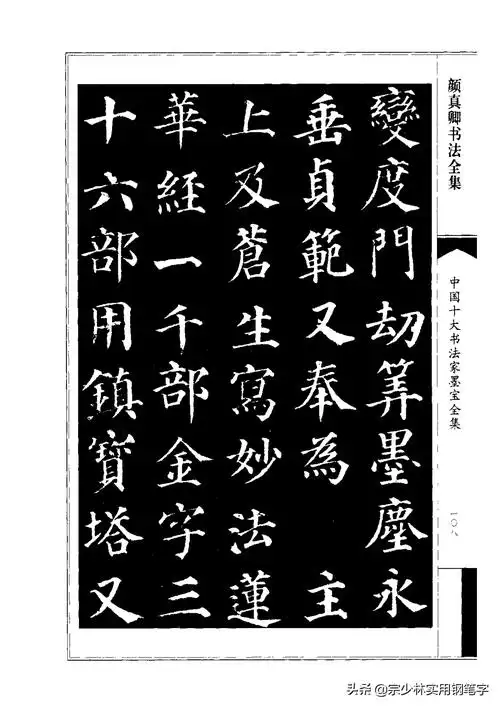 變度門劫筭墨塵永
垂貞範又奉為 主
上及蒼生寫妙法蓮
華經一千部金字三
十六部用鎮寶塔又
颜真卿书法全集
中国十大书法家墨宝全集
一〇八
头条 @宗少林实用钢笔字